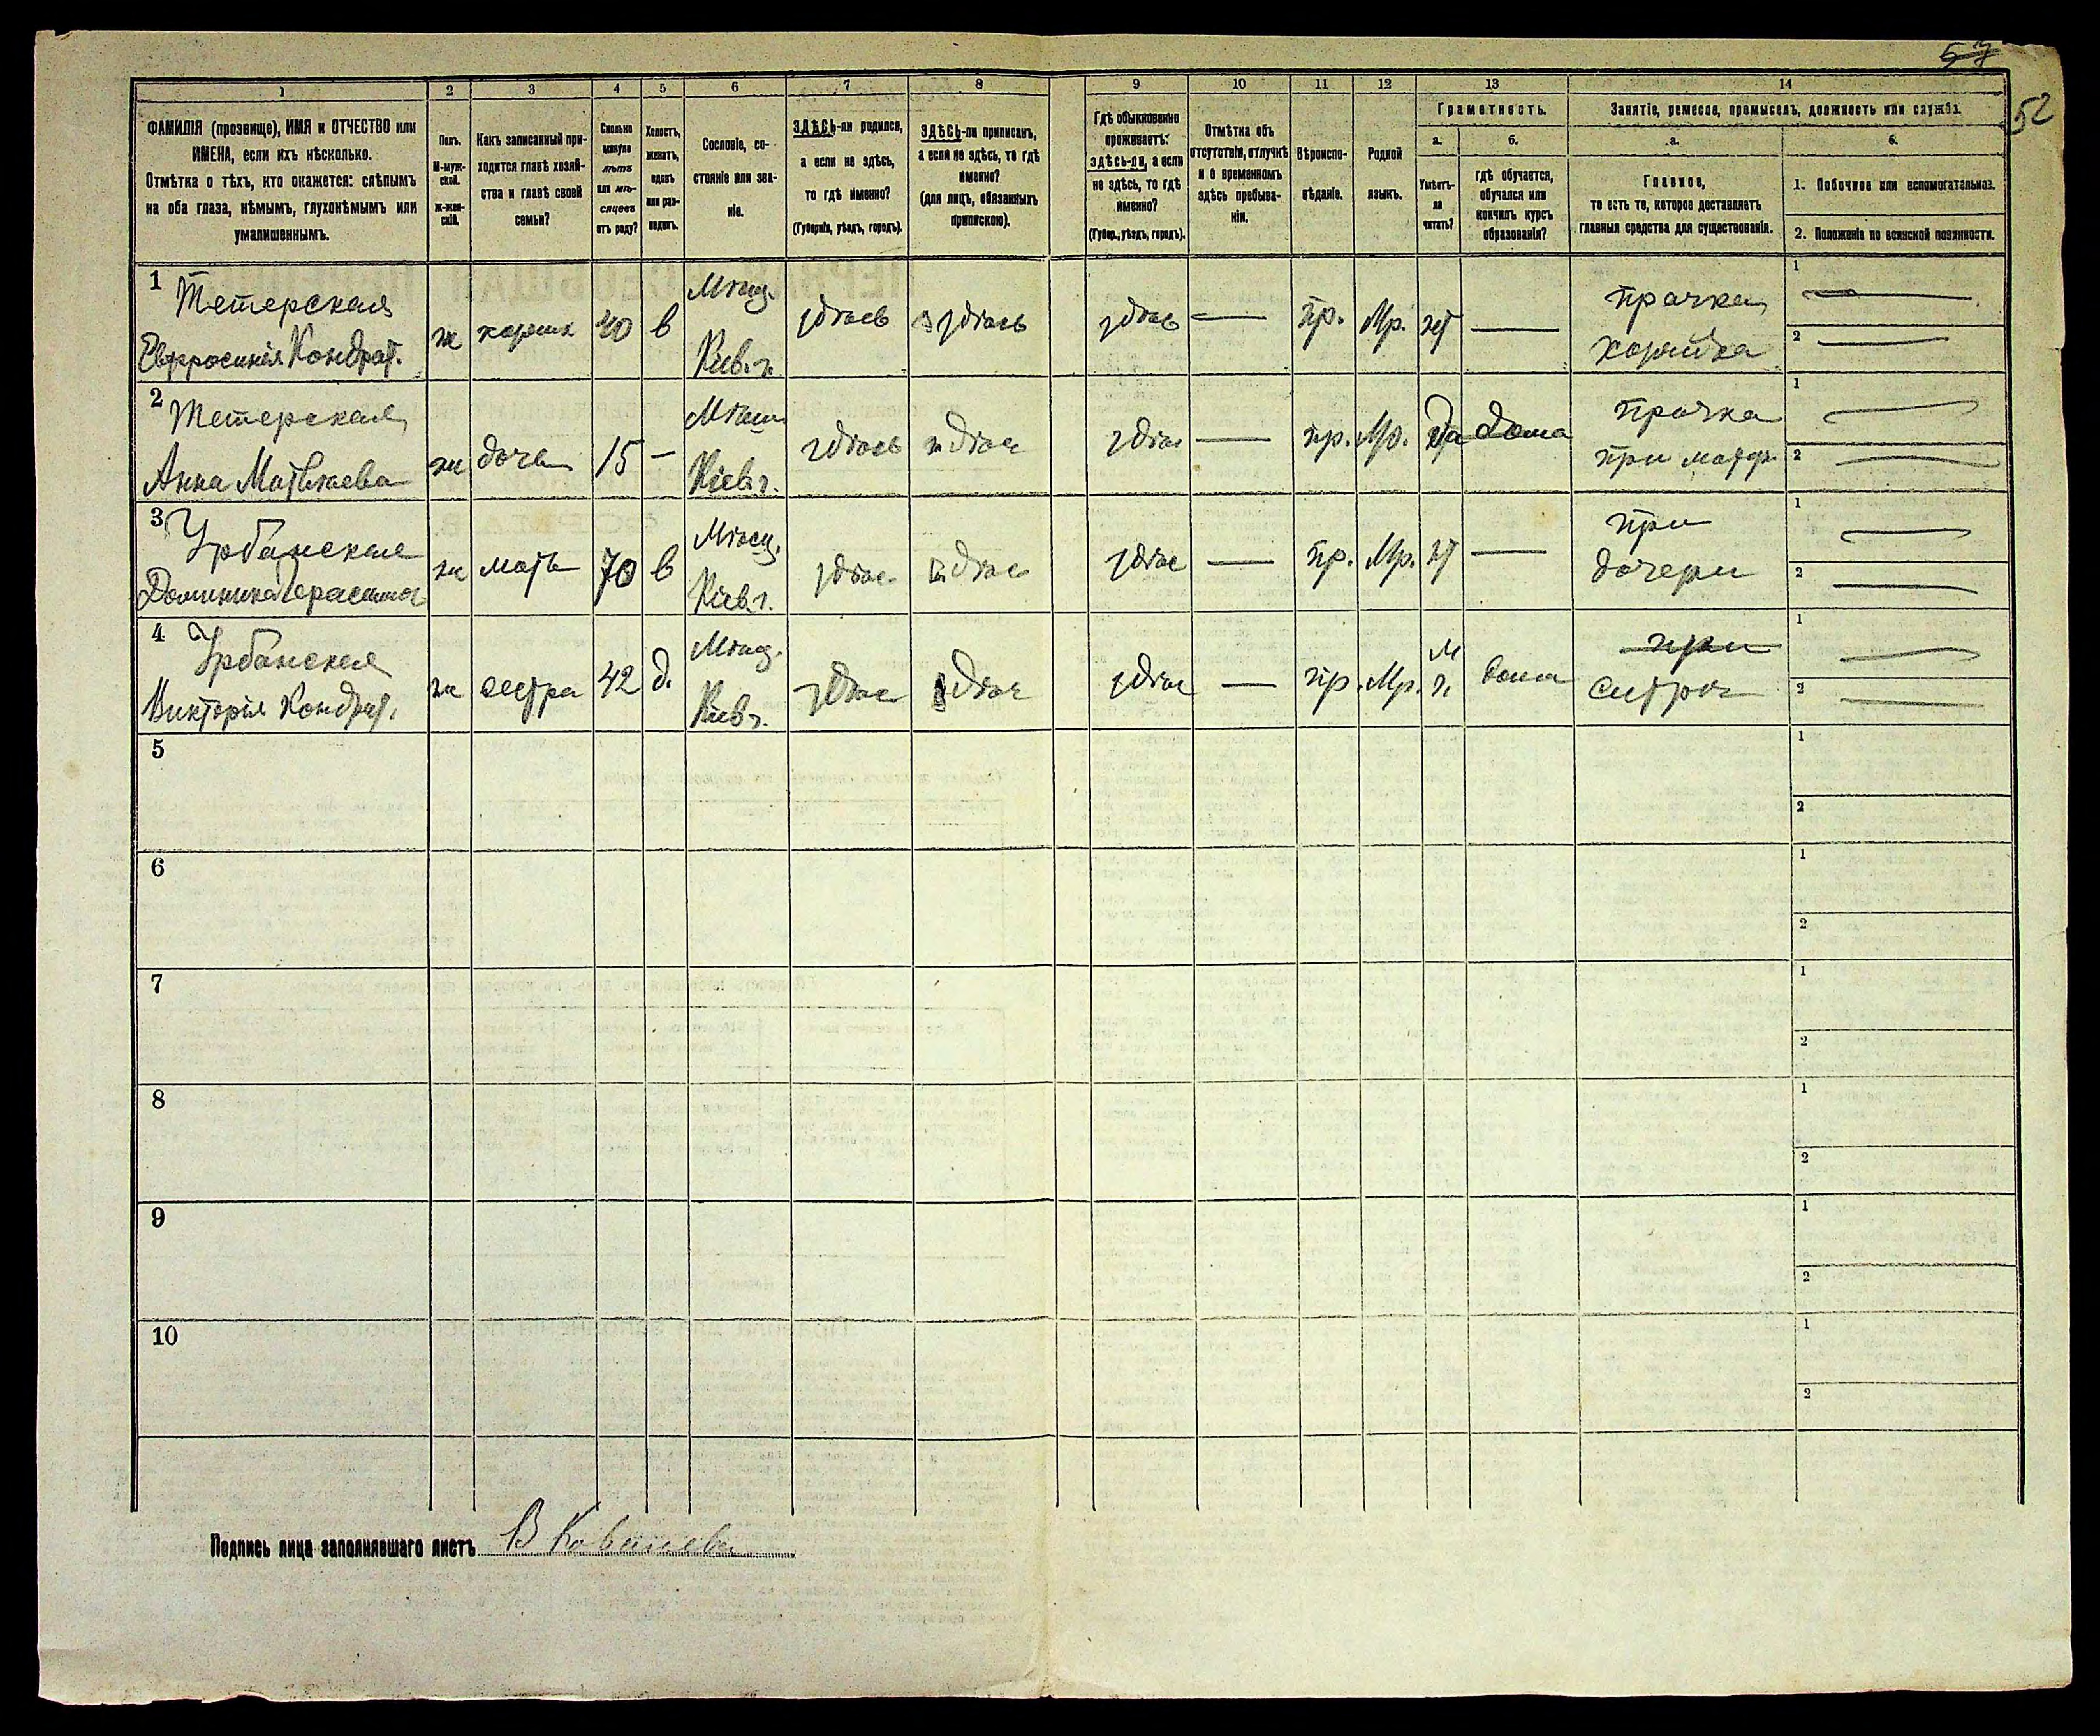 57
52
1
2
3
4
5
6
7
8
9
10
11
12
13
14
ФАМИЛІЯ (прозвище), ИМЯ и ОТЧЕСТВО или
ИМЕНА, если ихъ нѣсколько.
Отмѣтка о тѣхъ, кто окажется: слѣпымъ
на оба глаза, нѣмымъ, глухонѣмымъ или
умалишеннымъ.
Полъ.
М-муж-
ской.
Ж-жен-
скій.
Какъ записанный при-
ходится главѣ хозяй-
ства и главѣ своей
семьи?
Сколько
минуло
лѣтъ
или мѣ-
сяцевъ
отъ роду?
Холостъ,
женатъ,
вдовъ
или раз-
веденъ.
Сословіе, со-
стояніе или зва-
ніе.
ЗДѢСЬ-ли родился,
а если не здѣсь,
то гдѣ именно?
(Губернія, уѣздъ, городъ).
ЗДѢСЬ-ли приписанъ,
а если не здѣсь, то гдѣ
именно?
(для лицъ, обязанныхъ
припискою).
Гдѣ обыкновенно
проживаетъ:
здѣсь-ли, а если
не здѣсь, то гдѣ
именно?
(Губер., уѣздъ, городъ).
Отмѣтка объ
отсутствіи, отлучкѣ
и о временномъ
здѣсь пребыва-
ніи.
Вѣроиспо-
вѣданіе.
Родной
языкъ.
Грамотность.
а.
Умѣетъ-
ли
читать?
б.
гдѣ обучается,
обучался или
кончилъ курсъ
образованія?
Занятіе, ремесло, промыселъ, должность или служба.
а.
Главное,
то есть то, которое доставляетъ
главныя средства для существованія.
б.
1. Побочное или вспомогательное.
2. Положеніе по воинской повинности.
1 Тетерская
Евфросинія Кондрат.
ж
хозяйк
40
в
Мѣщ.
Кіев. г.
здѣсь
здѣсь
здѣс
—
пр.
Мр.
нт
—
прачка
хозяйка
1
2
2 Тетерская
Анна Матвѣева
ж
дочь
15
—
Мѣщ
Кіев. г.
здѣсь
здѣс
здѣс
—
пр.
Мр.
Да
дома
прачка
при матери
1
2
3 Урбанская
Доминика Герасимов
ж
мать
70
в
Мѣщ.
Кіев. г.
здѣс
здѣс
здѣс
—
пр.
Мр.
нт
—
при
дочери
1
2
4 Урбанская
Викторія Кондрат.
ж
сестра
42
д.
Мѣщ.
Кіев г.
здѣс
здѣс
здѣс
—
пр.
Мр.
дома
при
сестрѣ
1
2
5
1
2
6
1
2
7
1
2
8
1
2
9
1
2
10
1
2
Подпись лица заполнявшаго листъ В